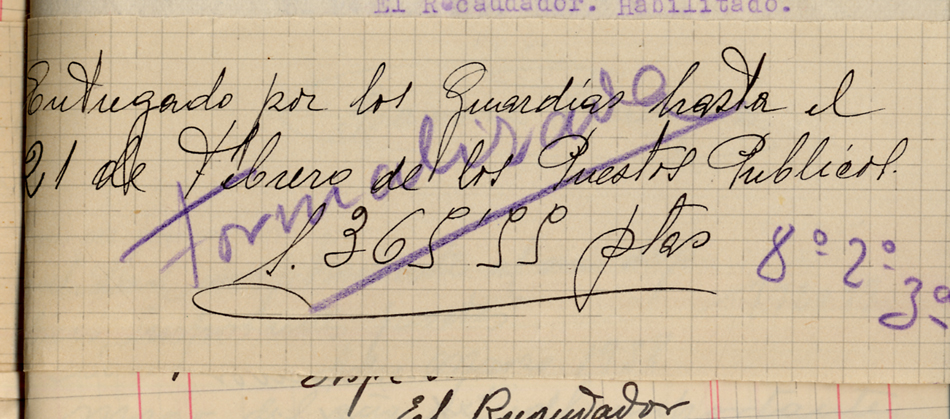 El Recaudador. Habilitado.
Entregado por los Guardias hasta el
21 de Febrero de los Puestos Publicos.
formalizado
S. 365'55 ptas
8º 2º
3º
El Recaudador